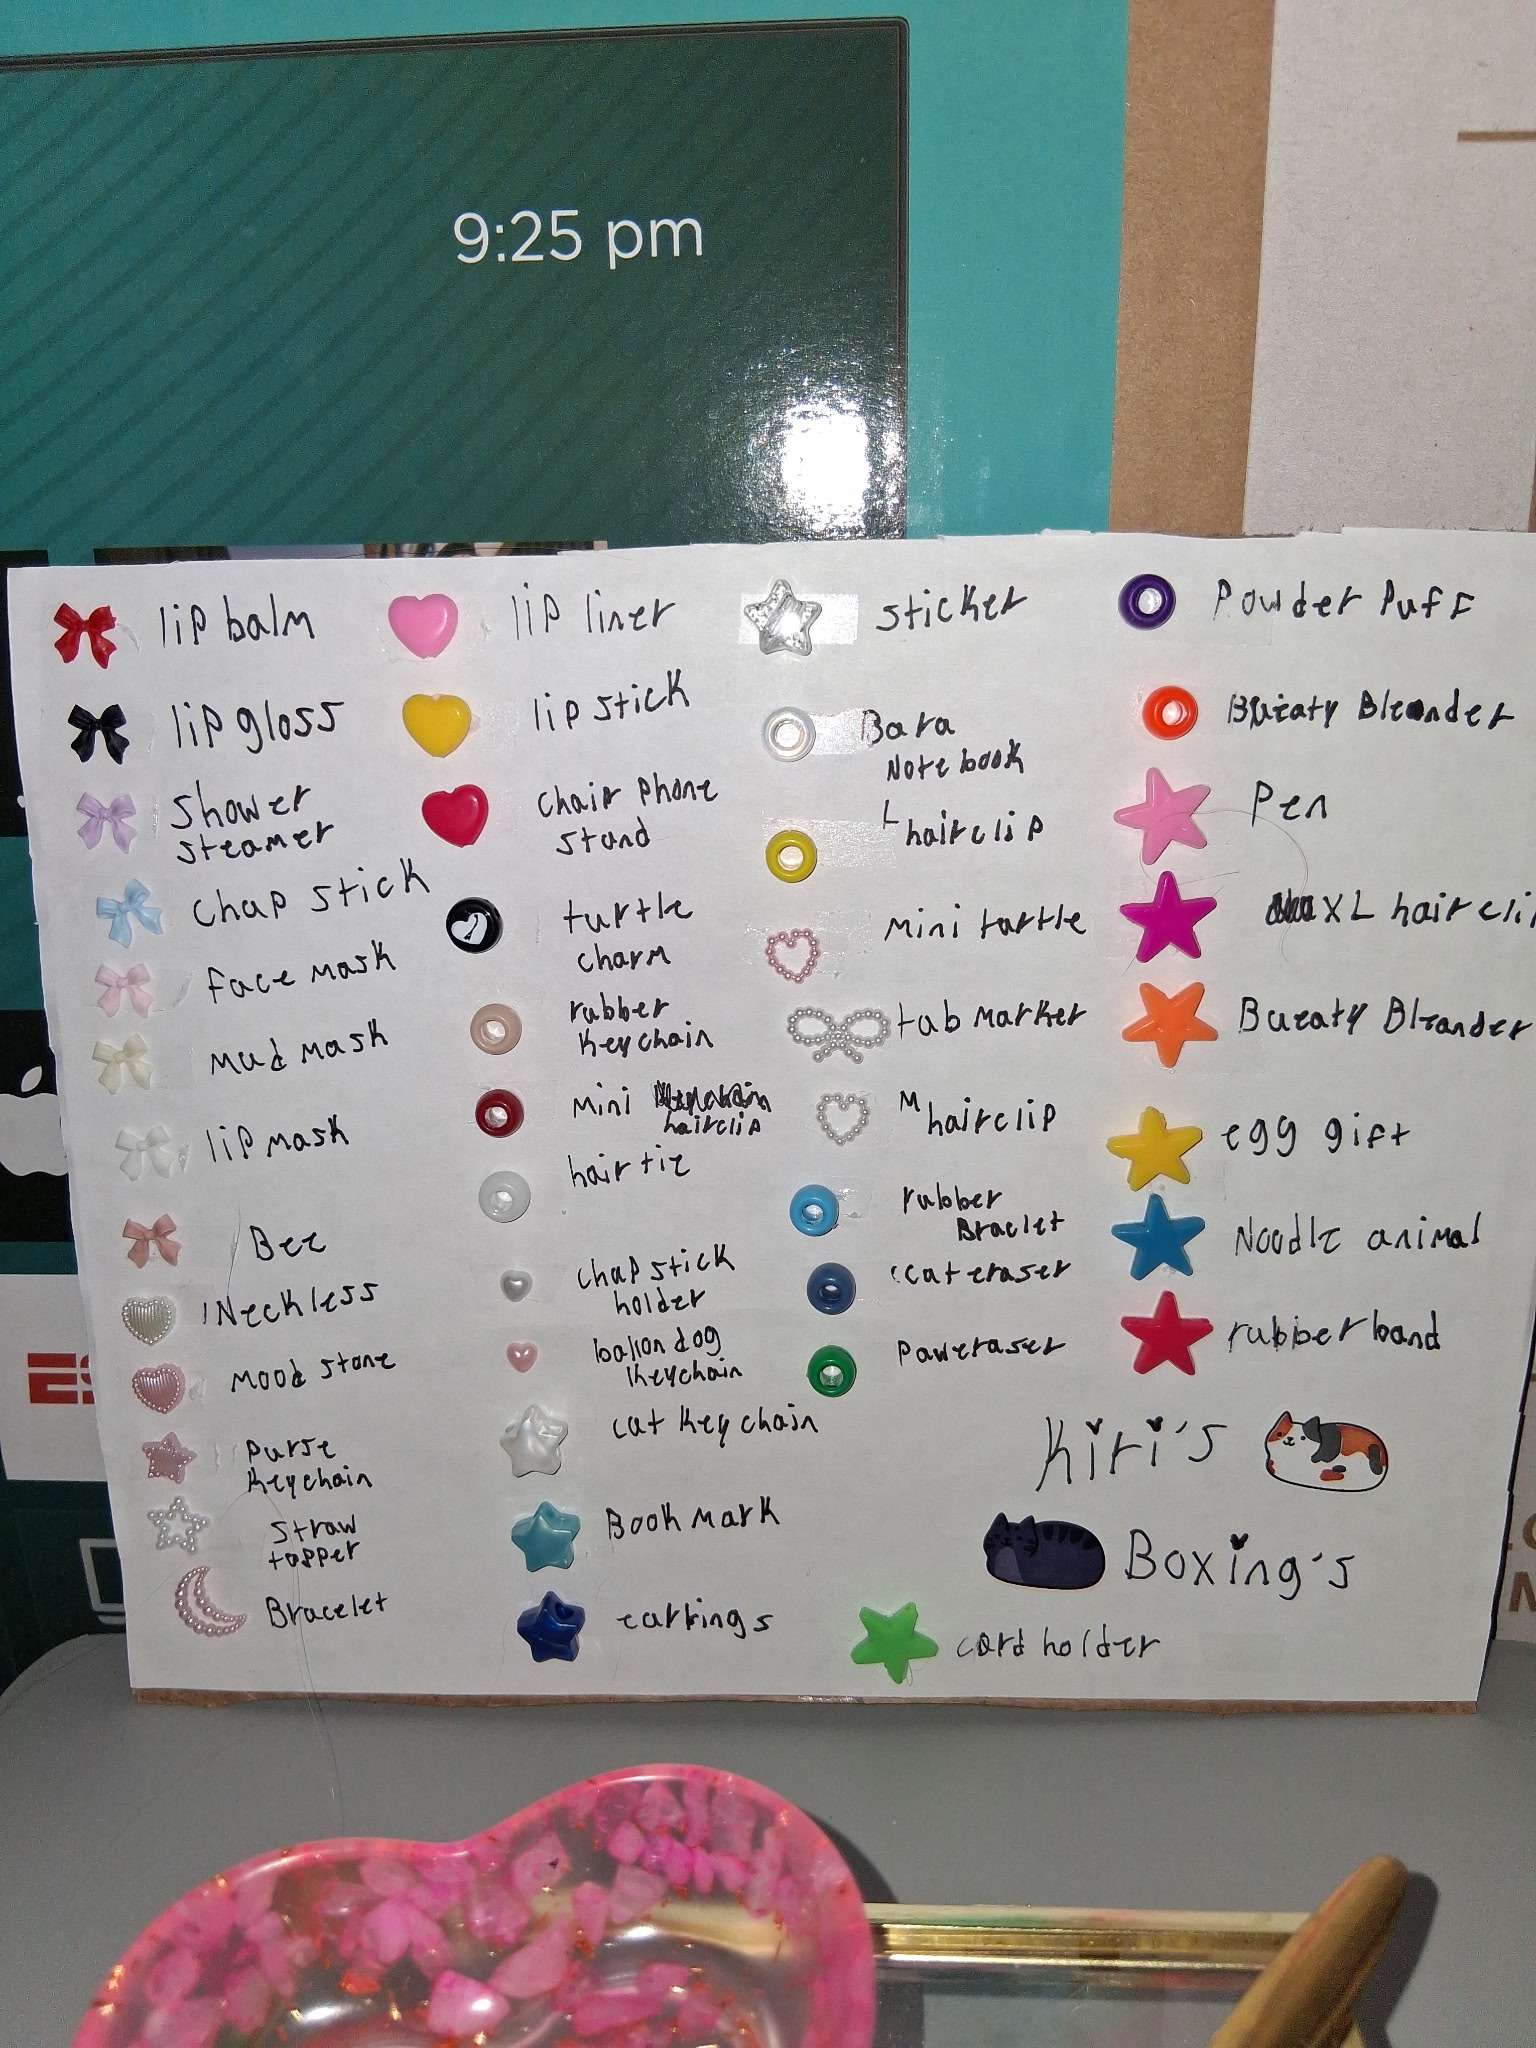 9:25 pm
lip balm
lip gloss
shower
steamer
chap stick
face mask
mud mask
lip mask
Bee
Neckless
mood stone
purse
keychain
straw
topper
Bracelet
lip liner
lip stick
chair phone
stand
turtle
charm
rubber
keychain
mini
hairclip
hair tie
chap stick
holder
ballon dog
keychain
cat keychain
Book mark
earrings
sticker
Bara
Notebook
L hairclip
mini turtle
tab marker
M hairclip
rubber
Braclet
cat eraser
paw eraser
Powder Puff
Bueaty Bleander
Pen
XL hairclip
Bueaty Bleander
egg gift
Noodle animal
rubber band
Kiri's
Boxing's
card holder